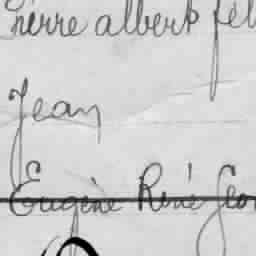 Pierre albert fél
Jean
Eugène René Geor